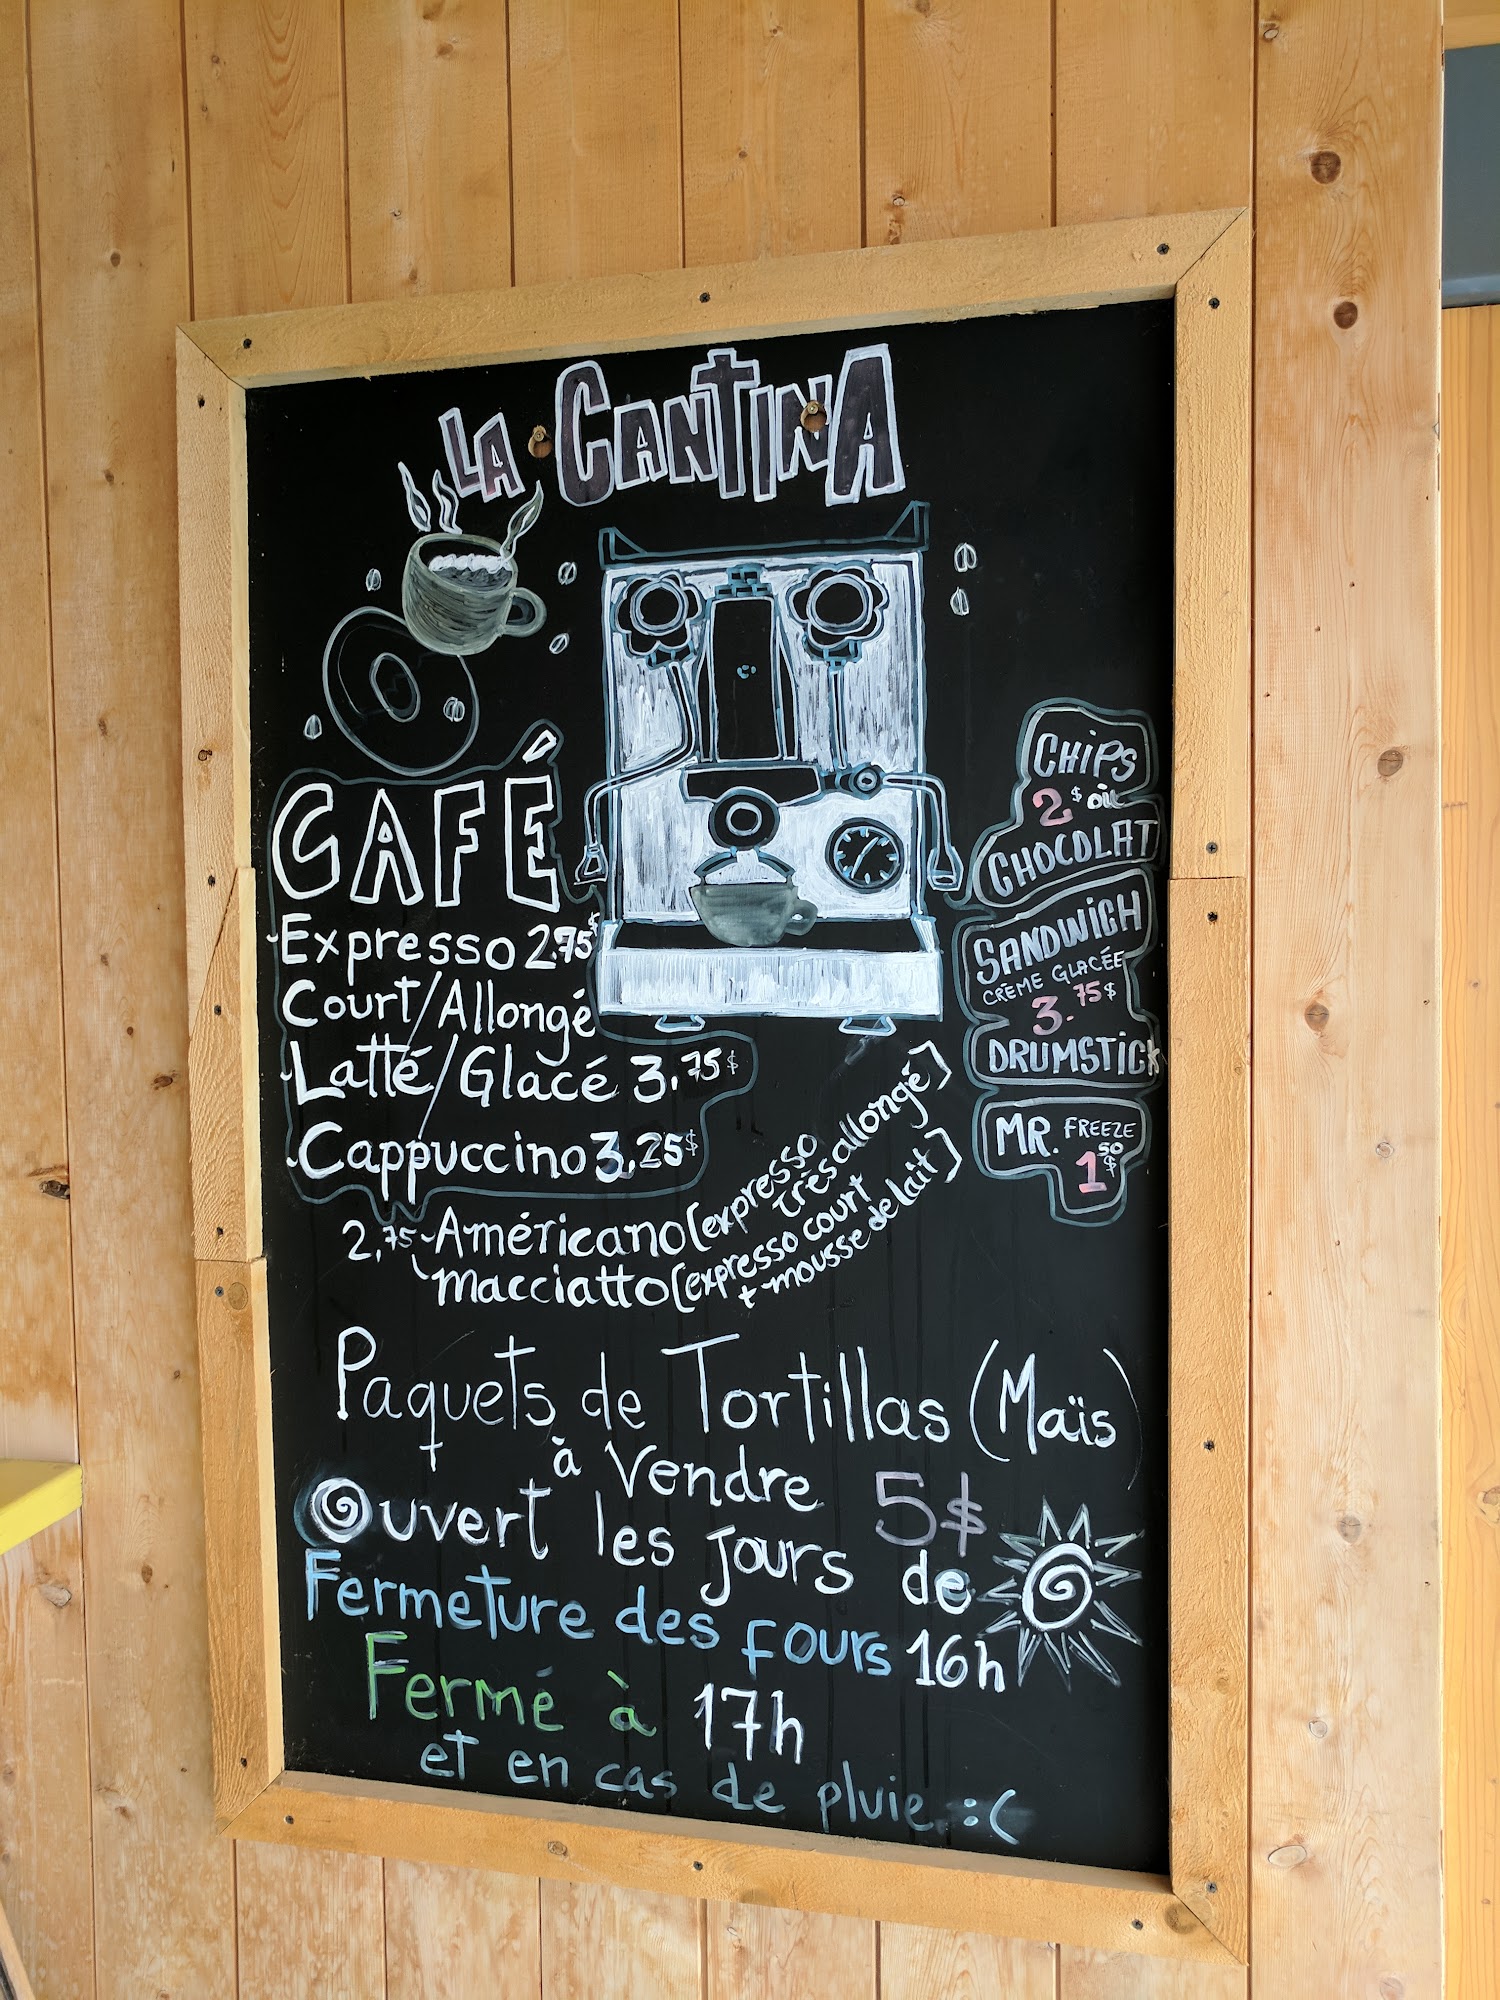 LA CANTINA
CAFÉ
Expresso 2.75$
Court/Allongé
Latté/Glacé 3.75$
Cappuccino 3.25$
2.75 Américano (expresso très allongé)
macciatto (expresso court + mousse de lait)
CHIPS
2$ ou
CHOCOLAT
SANDWICH
CRÈME GLACÉE
3.75$
DRUMSTICK
MR. FREEZE
1.50$
Paquets de Tortillas (Maïs)
à Vendre 5$
Ouvert les jours de
Fermeture des fours 16h
Fermé à 17h
et en cas de pluie :(